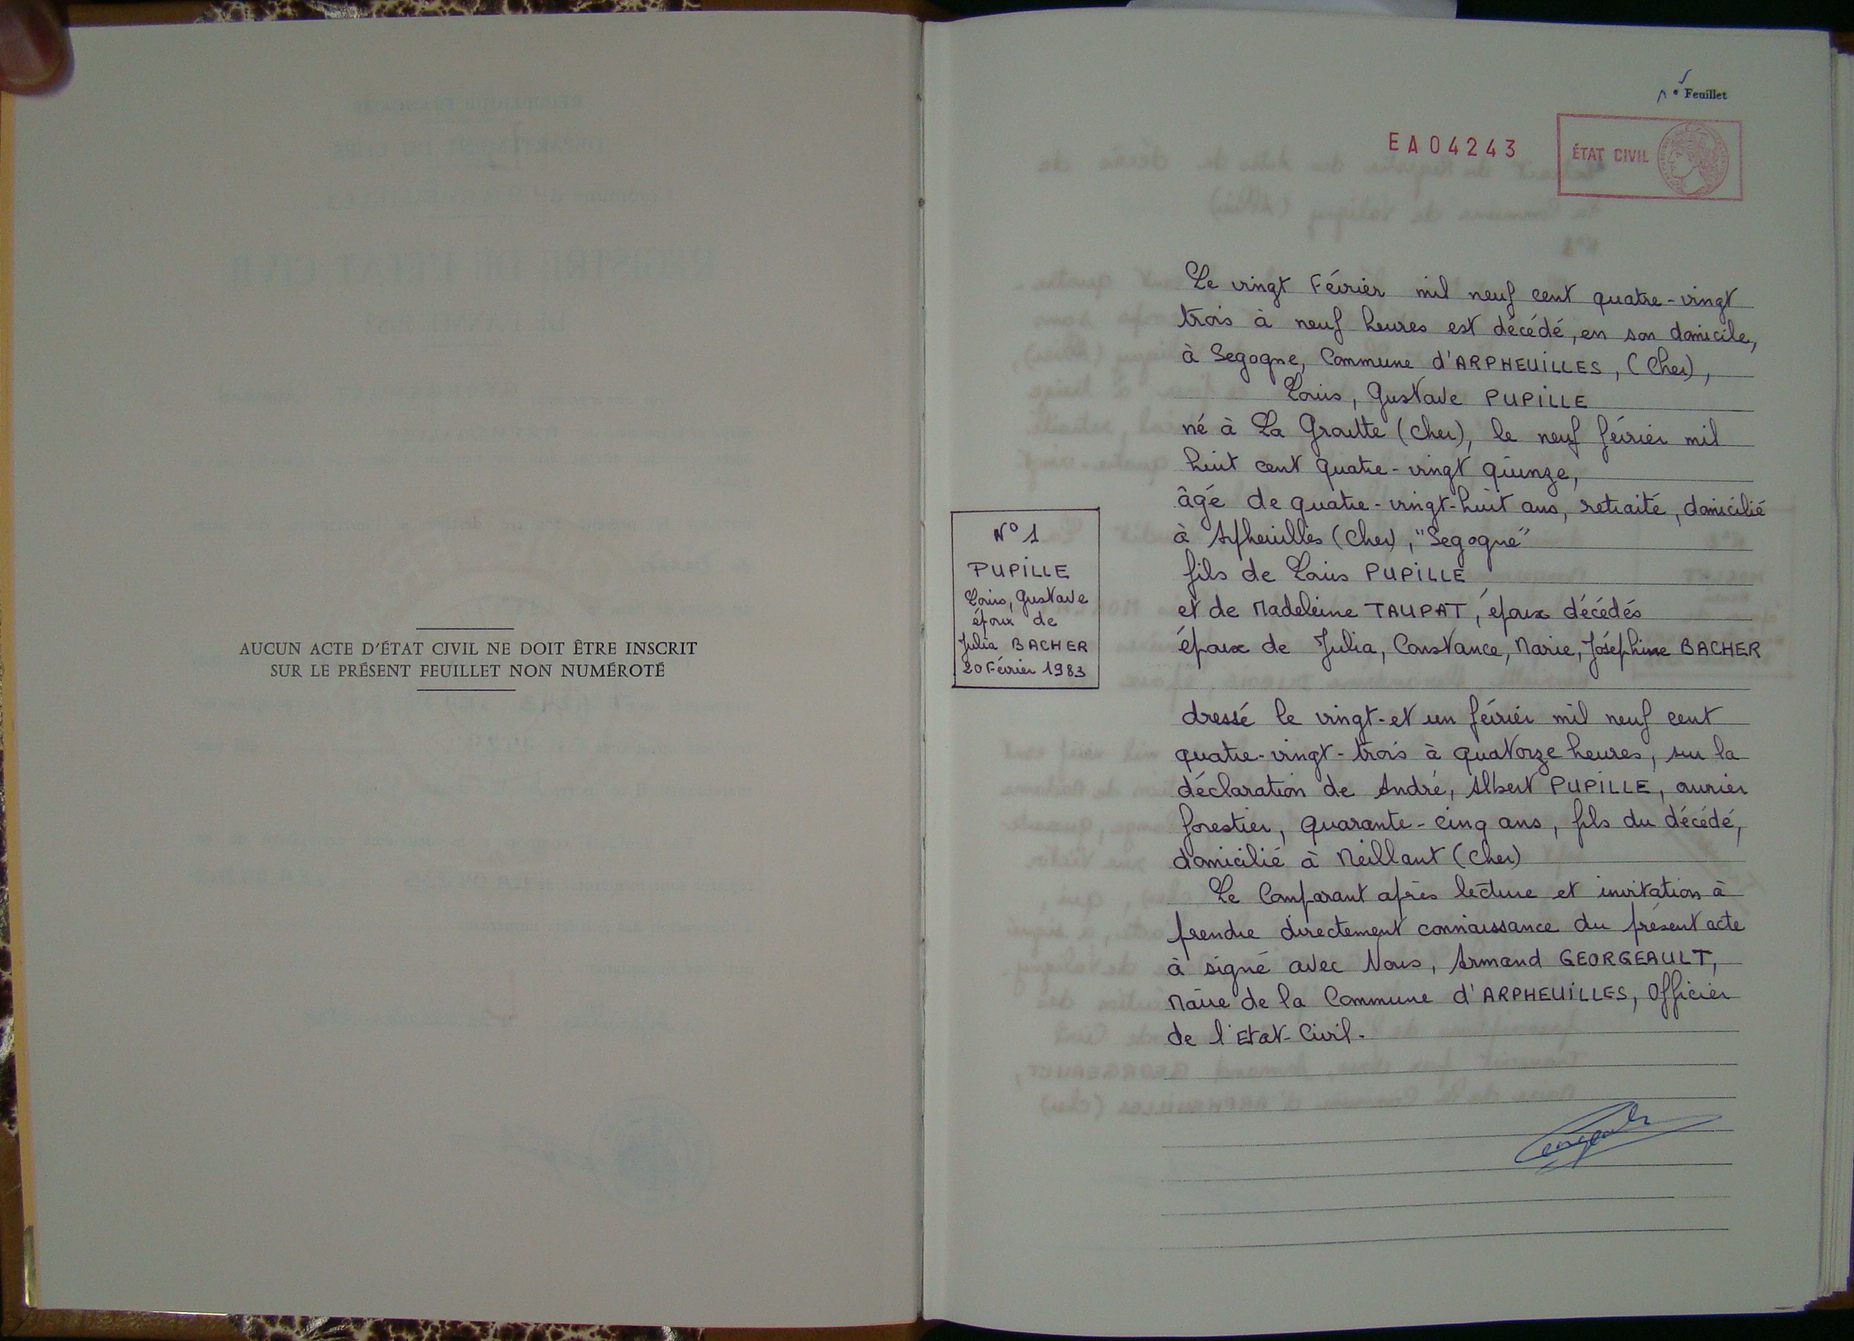 AUCUN ACTE D'ÉTAT CIVIL NE DOIT ÊTRE INSCRIT
SUR LE PRÉSENT FEUILLET NON NUMÉROTÉ
Feuillet
EA04243
ÉTAT CIVIL
Le vingt Février mil neuf cent quatre-vingt
trois à neuf heures est décédé, en son domicile,
à Segogne, Commune d'ARPHEUILLES, (Cher),
Louis, Gustave PUPILLE
né à La Groutte (Cher), le neuf février mil
huit cent quatre-vingt quinze,
âgé de quatre-vingt-huit ans, retraité, domicilié
à Arpheuilles (Cher), "Segogne"
fils de Louis PUPILLE
et de Madeleine TAUPAT, époux décédés
époux de Julia, Constance, Marie, Joséphine BACHER
N° 1
PUPILLE
Louis, Gustave
époux de
Julia BACHER
20 Février 1983
dressé le vingt-et un février mil neuf cent
quatre-vingt-trois à quatorze heures, sur la
déclaration de André, Albert PUPILLE, ouvrier
forestier, quarante-cinq ans, fils du décédé,
domicilié à Meillant (Cher)
Le Comparant après lecture et invitation à
prendre directement connaissance du présent acte
à signé avec Nous, Armand GEORGEAULT,
Maire de la Commune d'ARPHEUILLES, Officier
de l'Etat-Civil.